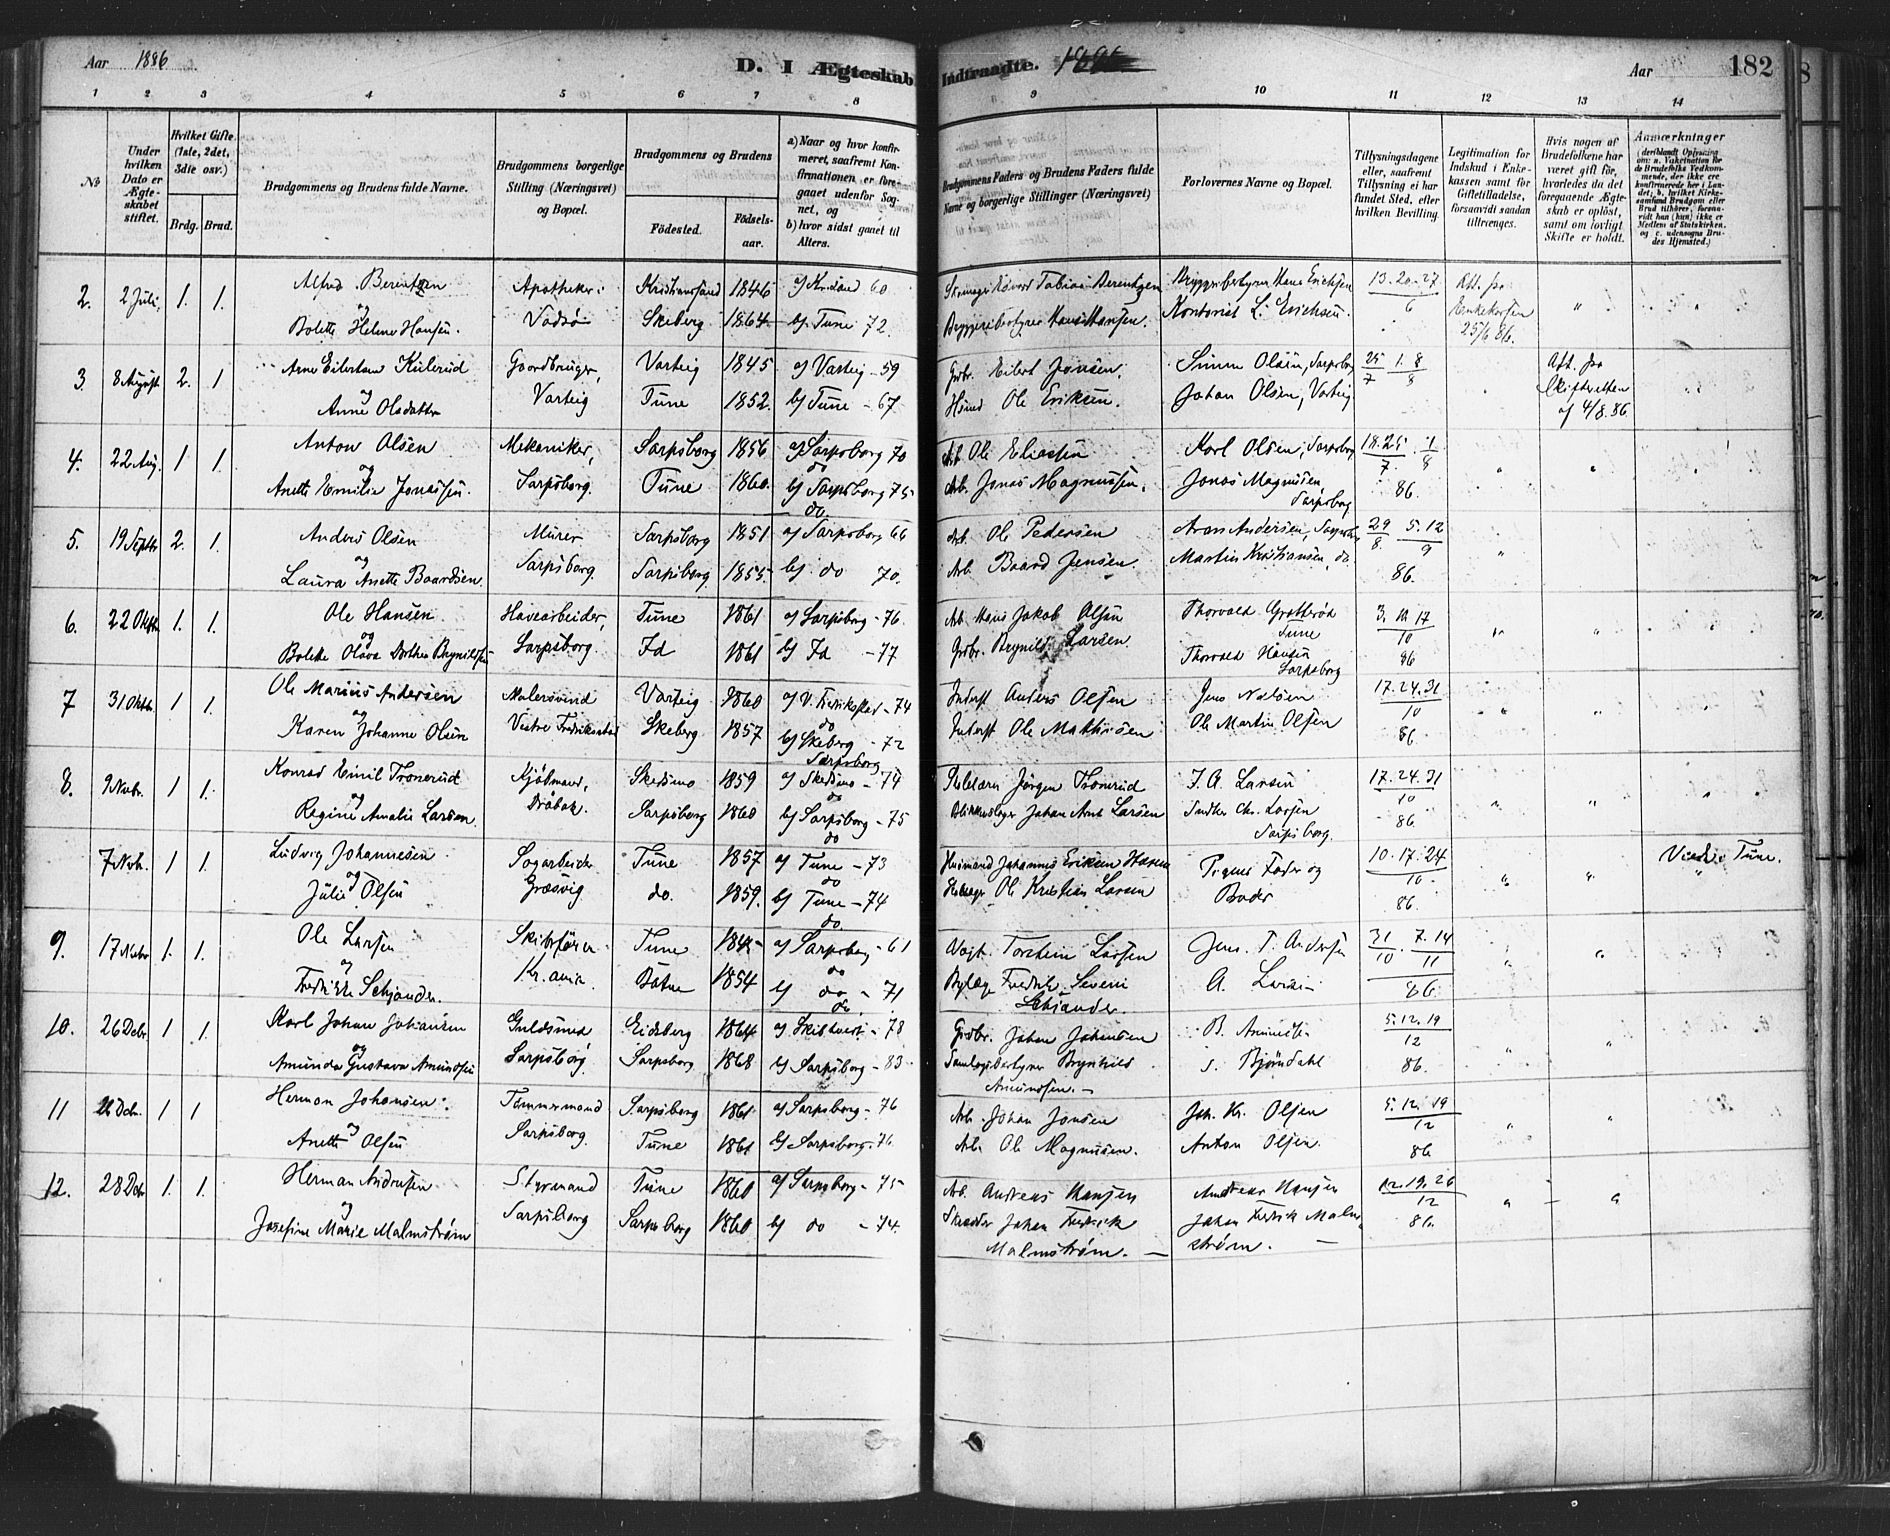 Aar 1886
D. I Ægteskab Indtraadte.
Aar 182
1 2 3 4 5 6 7 8 9 10 11 12 13 14
No
Under hvilken Dato er Ægteskabet stiftet.
Hvilket Gifte (1ste, 2det, 3die osv.)
Brdg. Brud.
Brudgommens og Brudens fulde Navne.
Brudgommens borgerlige Stilling (Næringsvei) og Bopæl.
Brudgommens og Brudens
Födested. Födselsaar.
a) Naar og hvor konfirmeret, saafremt Konfirmationen er foregaaet udenfor Sognet, og
b) hvor sidst gaaet til Alters.
Brudgommens Faders og Brudens Faders fulde Navne og borgerlige Stillinger (Næringsvei)
Forlovernes Navne og Bopæl.
Tillysningsdagene eller, saafremt Tillysning ei har fundet Sted, efter hvilken Bevilling.
Legitimation for Indskud i Enkekassen samt for Giftetilladelse, forsaavidt saadan tiltrænges.
Hvis nogen af Brudefolkene har været gift før, hvorledes da det foregaaende Ægteskab er oplöst, samt om lovligt Skifte er holdt.
Anmærkninger
(deriblandt Oplysning om: a. Vakcination for de Brudefolks Vedkommende, der ikke ere konfirmerede her i Landet; b. hvilket Kirkesamfund Brudgom eller Brud tilhører, forsaavidt han (hun) ikke er Medlem af Statskirken, og c. udensogns Brudes Hjemsted.)
2. 2 Juli, 1. 1. Alfred Berentzen Apotheker Kristianssand 1846 a) Krsand 60 Tobias Berentzen Bryggeribestyrer Hans Erichsen 13. 20. 27 Att. fra
og
Bolette Helene Hansen. Vadsö Skeberg 1864 b) Tune 72. Bryggeribestyrer Hans Hansen. Kontorist L. Erichsen. 6 Enkekassen
25/6 86.
3. 8 August 2. 1 Arne Eilertsen Kulerud Gaardbruger, Varteig 1845 a) Varteig - 59 Grdbr. Eilert Jensen. Simen Olsen, Sarpsborg 25/7 1. 8/8 Att. fra
og
Anne Olsdatter Varteig Tune 1852. b) Tune - 67. Husmd Ole Eriksen. Johan Olsen, Varteig Skifteretten
af 4/8. 86.
4. 22 Aug. 1 1. Anton Olsen Mekaniker, Sarpsborg 1856 a) Sarpsborg 70 Arb. Ole Eliassen Karl Olsen, Sarpsborg 18. 25/7. 1/8
og do
Anette Emilie Jonassen. Sarpsborg. Tune 1860. b) Sarpsborg 75 Arb. Jonas Magnussen. Jonas Magnussen 86
do. Sarpsborg
5. 19 Septbr 2. 1. Anders Olsen Murer Sarpsborg 1851 a) Sarpsborg 66 Arb. Ole Pedersen Aron Andersen, Sarpsborg 29/8. 5. 12/9
og
Laura Anette Baardsen. Sarpsborg. Sarpsborg. 1855 b) do 70. Arb. Baard Jensen. Martin Kristiansen, do. 86.
6. 22 Oktbr 1. 1. Ole Hansen Havearbeider, Tune 1861 a) Sarpsborg - 76. Arb. Hans Jakob Olsen Thorvald Grøtterød 3. 10. 17
og Tune 10
Bolette Olava Dorthea Brynildsen Sarpsborg. Id 1861 b) Id - 77 Grdbr. Brynild Larsen. Thorvald Hansen 86
Sarpsborg
7 31 Oktbr. 1 1. Ole Marius Andersen Malersvend Varteig 1860 a) V. Fredrikstad - 74 Inderst Anders Olsen Jens Nielsen 17. 24. 31
og do 10
Karen Johanne Olsen Vestre Fredrikstad Skeberg 1857 b) Skeberg - 72 Inderst Ole Mathisen Ole Martin Olsen 86.
Sarpsborg
8. 9 Novbr. 1 1. Konrad Emil Tronerud Kjöbmand, Skedsmo 1859 a) Skedsmo - 74 Jörgen Tronerud J. A. Larsen 17. 24. 31
og do 10
Regine Amalie Larsen. Dröbak. Sarpsborg 1860 b) Sarpsborg - 75 Blikkenslager Johan Arnt Larsen Snedker Chr. Larsen 86
do Sarpsborg.
7 Novbr. 1 1. Ludvig Johannesen Sagarbeider Tune 1857 a) Tune - 73 Husmand Johannes Eriksen Pigens Fader og 10. 17. 24 Viede i Tune.
og do 10.
Julie Olsen Græsvig do. 1859. b) Tune - 74 Ole Kristian Larsen Broder 86.
do.
9. 17 Novbr 1. 1. Ole Larsen Skibsförer Tune 184 a) Sarpsborg - 61 Vagt. Torstein Larsen Jens. T. Andersen 31/10. 7. 14/11
og do
Fredrikke Schjander. Kr.ania. 1854 b) do - 71 Fredrik Severin A. Larsen 86
do. Schjander.
10. 26 Decbr. 1 1. Karl Johan Johansen Guldsmed Eidsberg 1864 a) Skibtvedt - 78 Grdbr. Johan Johansen B. Amundsen 5. 12. 19
og 12
Amunda Gustava Amundsen Sarpsborg Sarpsborg 1868 b) Sarpsborg - 83 Brynhild Bjørndahl 86.
Amundsen. -
11 26 Dcbr. 1 1 Herman Johansen Tømmermand Sarpsborg 1861 a) Sarpsborg - 76 Arb. Johan Jensen Joh. Kr. Olsen 5. 12. 19
og 12
Anette Olsen Sarpsborg. Tune 1861 b) Sarpsborg. 76. Arb. Ole Magnusen. Anton Olsen 86
12. 28 Dcbr 1. 1. Herman Andresen Styrmand Tune 1860 a) Sarpsborg - 75 Arb. Andreas Hansen Andreas Hansen 12. 19. 26
og 12
Josefine Marie Malmstrøm Sarpsborg Sarpsborg 1860 b) do - 74. Skrædder Johan Fredrik Johan Fredrik Malm- 86.
Malmstrøm. - strøm. -